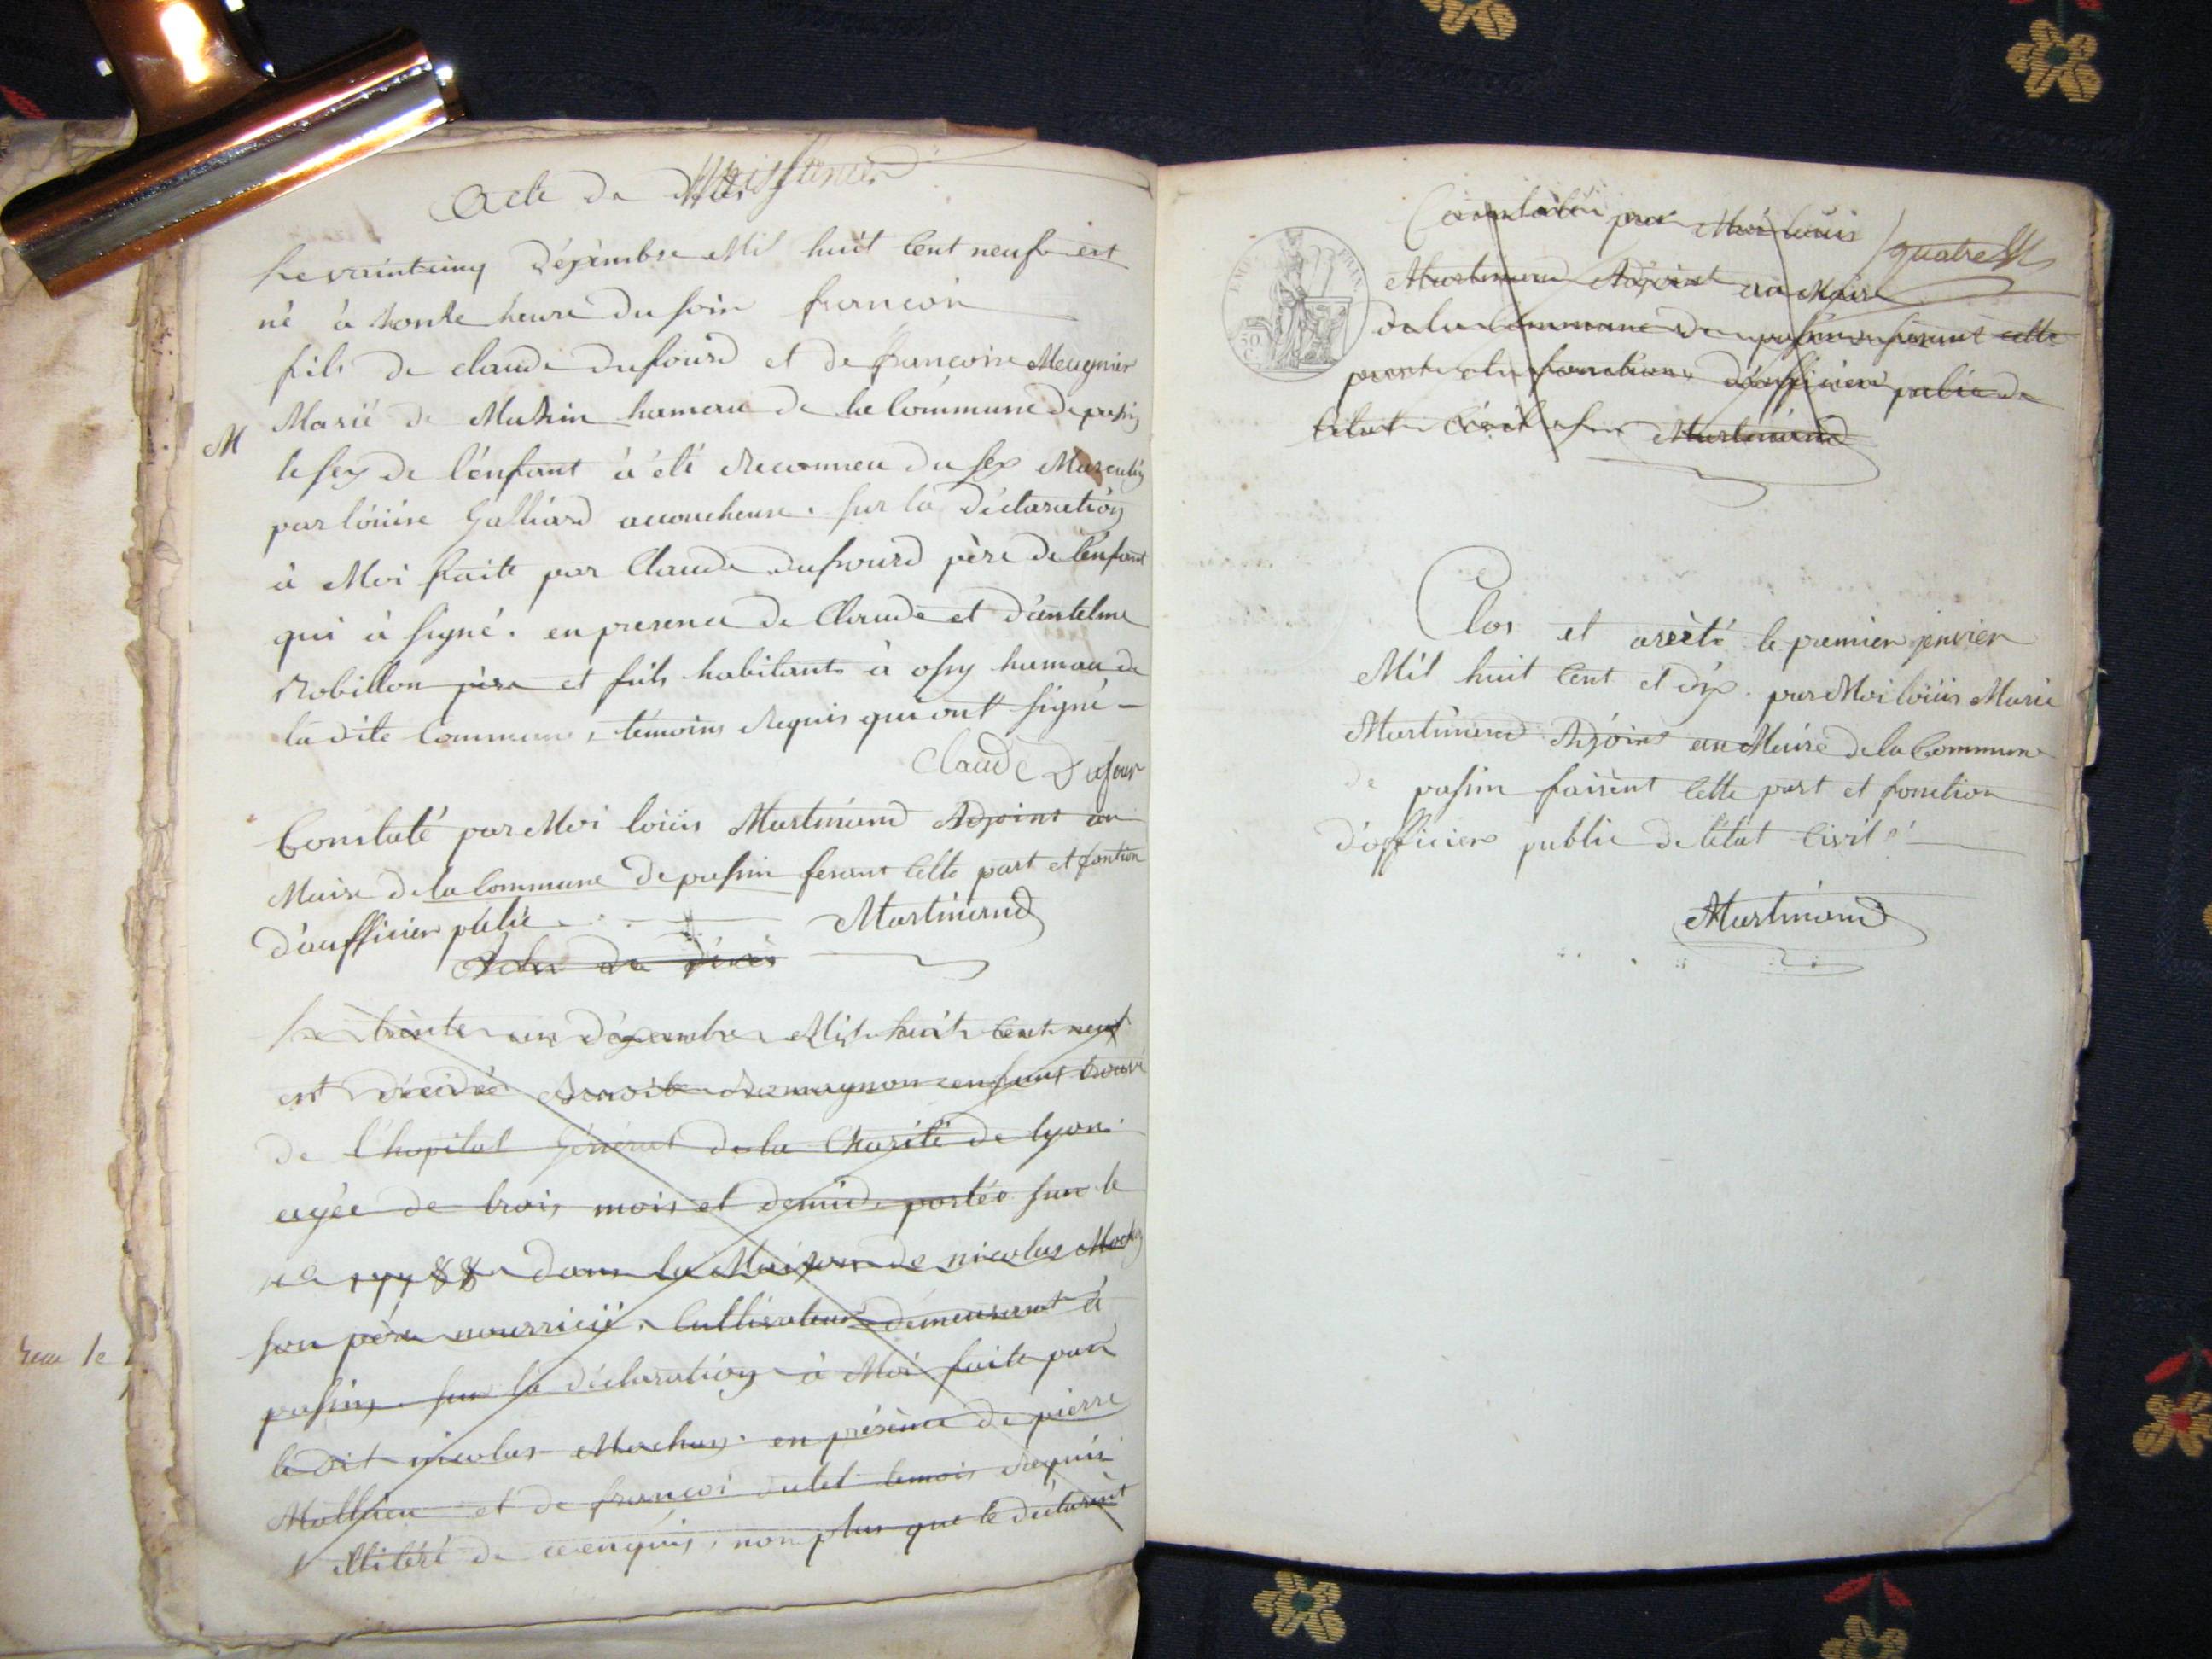 Acte de Naissence
Le vaintcinq déçambre Mil huit Cent neuf est
né à honse heure du soir françois
fils de claude dufourd et de françoise Meugnier
Marié de Mussin hameau de la Commune de passin
M
le sex de l'enfant à été reconneu du sex Masculin
par loüise Galliard accoucheuse. sur la déclaration
à Moi faite par Claude dufourd père de l'enfant
qui à signé. en presence de Claude et d'antelme
Robillon père et fils habitants à ossy hameau de
la dite Commune, témoins requis qui ont signé
Claude Dufour
Constaté par Moi loüis Martinand Adjoint au
Maire de la Commune de passin fesant Cette part et fontion
d'aufficier public
Martinand
Acte de décès
Le trente un déçembre Mil huit Cent neuf
est décédé Romagnon enfant trouvé
de l'hopital Géneral de la Charité de lyon
agée de trois mois et demid. portée sur le
no 17788 dans la Maison de nicolas
son père nourricié. Cultivateur demeurant à
passin. sur la déclaration à Moi faite par
le dit nicolas en présence de pierre
et de françoi temois requis
Militré de ce enquis, non plus que le déclarent
Constatée par Moi louis
quatre
Martinand Adjoint au Maire
de la Commune de passin fesant cette
part et fonctions d'officier public de
l'état Civil
Martinand
EMP. FRAN.
50 C.
Clos et arrèté le premier jenvier
Mil huit Cent et dix. par Moi loüis Marie
Martinand Adjoint au Maire de la Commune
de passin faisent Cette part et fonction
d'officier public de l'état Civil
Martinand